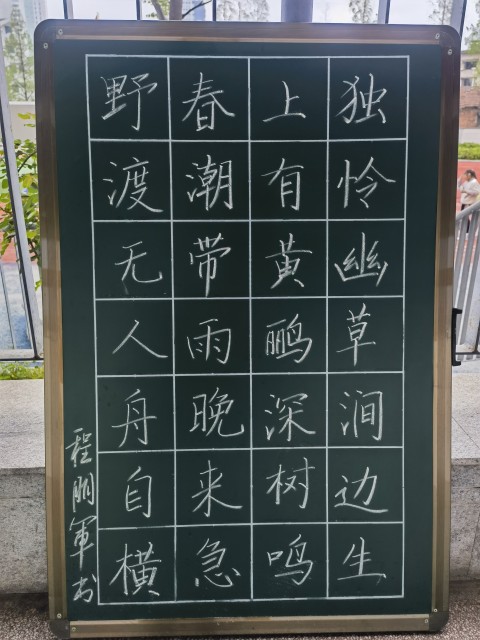 独怜幽草涧边生
上有黄鹂深树鸣
春潮带雨晚来急
野渡无人舟自横
程朋軍书